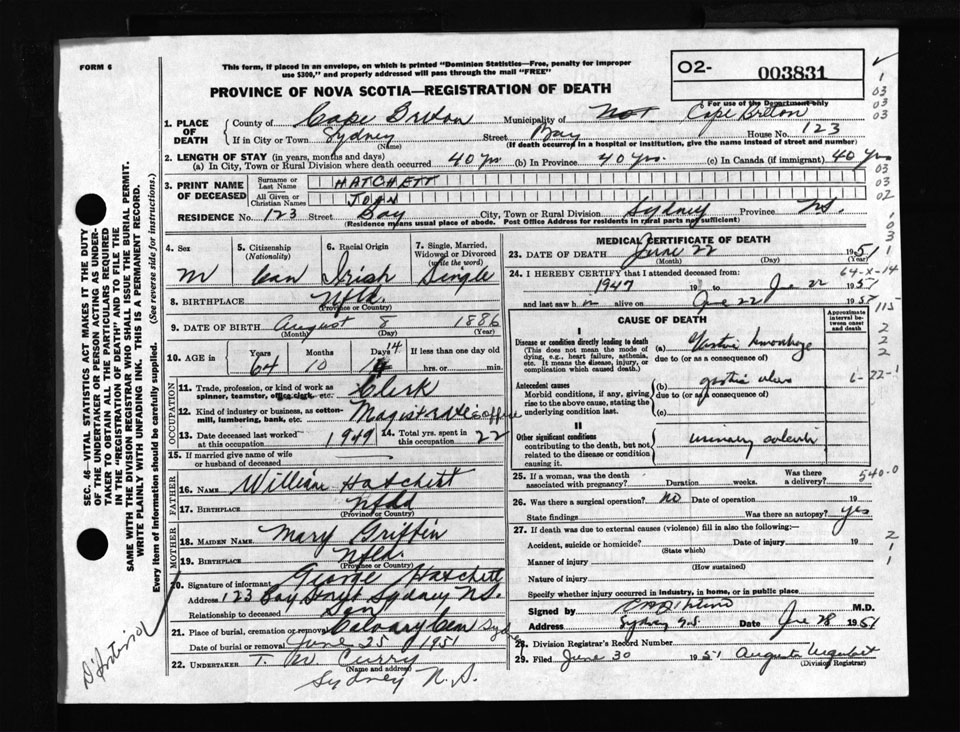 FORM 6
This form, if placed in an envelope, on which is printed "Dominion Statistics—Free, penalty for improper
use $300," and properly addressed will pass through the mail "FREE"
O2- 003831
PROVINCE OF NOVA SCOTIA—REGISTRATION OF DEATH
For use of the Department only
1. PLACE OF DEATH
County of Cape Breton Municipality of Not Cape Breton
If in City or Town Sydney Street Bay House No. 123
(Name) (If death occurred in a hospital or institution, give the name instead of street and number)
2. LENGTH OF STAY (in years, months and days)
(a) In City, Town or Rural Division where death occurred 40 yrs (b) In Province 40 yrs. (c) In Canada (if immigrant) 40 yrs
3. PRINT NAME OF DECEASED
Surname or Last Name HATCHETT
All Given or Christian Names JOHN
RESIDENCE No. 123 Street Bay City, Town or Rural Division Sydney Province N.S.
(Residence means usual place of abode. Post Office Address for residents in rural parts not sufficient)
4. Sex
m
5. Citizenship
(Nationality)
Can
6. Racial Origin
Irish
7. Single, Married, Widowed or Divorced
(write the word)
Single
8. BIRTHPLACE Nfld.
(Province or Country)
9. DATE OF BIRTH August 8 1886
(Month) (Day) (Year)
10. AGE in Years Months Days If less than one day
64 10 14 hrs. or min.
OCCUPATION
11. Trade, profession, or kind of work as
spinner, teamster, office clerk, etc. Clerk
12. Kind of industry or business, as cotton-
mill, lumbering, bank, etc. Magistrates office
13. Date deceased last worked
at this occupation 1949
14. Total yrs. spent in
this occupation 22
15. If married give name of wife
or husband of deceased
FATHER
16. NAME William Hatchett
17. BIRTHPLACE Nfld
(Province or Country)
MOTHER
18. MAIDEN NAME Mary Griffin
19. BIRTHPLACE Nfld.
(Province or Country)
20. Signature of informant George Hatchett
Address 123 Bay Sydney N.S.
Relationship to deceased Son
21. Place of burial, cremation or removal Calvary Cem Sydney
Date of burial or removal June 25 1951
22. UNDERTAKER T. W. Curry
(Name and address)
Sydney N.S.
MEDICAL CERTIFICATE OF DEATH
23. DATE OF DEATH June 22 1951
(Month) (Day) (Year)
64-X-14
24. I HEREBY CERTIFY that I attended deceased from:
1947 to June 22 1951
and last saw h m alive on June 22 1951
CAUSE OF DEATH
Approximate interval between onset and death
I
Disease or condition directly leading to death
(This does not mean the mode of
dying, e.g., heart failure, asthenia,
etc. It means the disease, injury, or
complication which caused death.)
(a) Gastric hemorrhage
due to (or as a consequence of)
Antecedent causes
Morbid conditions, if any, giving
rise to the above cause, stating the
underlying condition last.
(b) gastric ulcer
due to (or as a consequence of)
(c)
II
Other significant conditions
contributing to the death, but not
related to the disease or condition
causing it.
urinary
25. If a woman, was the death
associated with pregnancy? Duration weeks. Was there
a delivery?
540-0
26. Was there a surgical operation? No Date of operation 19
State findings Was there an autopsy? yes
27. If death was due to external causes (violence) fill in also the following:—
Accident, suicide or homicide? Date of injury 19
(State which)
Manner of injury
(How sustained)
Nature of injury
Specify whether injury occurred in industry, in home, or in public place
Signed by M.D.
Address Sydney N.S. Date June 28 1951
28. Division Registrar's Record Number
29. Filed June 30 1951
(Division Registrar)
SEC. 46—VITAL STATISTICS ACT MAKES IT THE DUTY
OF THE UNDERTAKER OR PERSON ACTING AS UNDER-
TAKER TO OBTAIN ALL THE PARTICULARS REQUIRED
IN THE "REGISTRATION OF DEATH" AND TO FILE THE
SAME WITH THE DIVISION REGISTRAR WHO SHALL ISSUE THE BURIAL PERMIT.
WRITE PLAINLY WITH UNFADING INK. THIS IS A PERMANENT RECORD.
Every item of information should be carefully supplied. (See reverse side for instructions.)